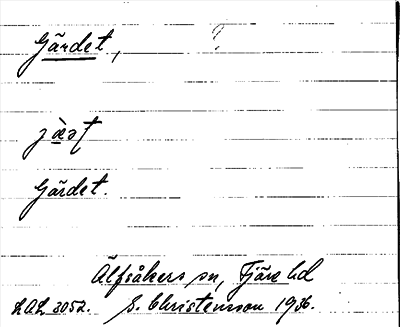 Gärdet, ?
Gärdet.
Älfsåkers sn, Fjäre hd
LAL 3052. S. Christensson 1936.